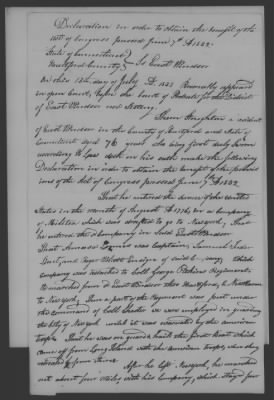 Declaration in order to obtain the benefit of the
Act of Congress passed June 7th A 1832.
State of Connecticut
Hartford County } SS East Windsor
On this 15th day of July A. 1832 Personally appeared
in open Court, before the Court of Probate for the District
of East Windsor now sitting.
Stoughton a resident
of East Windsor in the County of Hartford and State of
Connecticut aged 76 years who being first duly sworn
according to law doth on his oath make the following
Declaration in order to obtain the benefit of the provis
ions of the Act of Congress passed June 7th 1832.
That he entered the service of the United
States in the month of August A 1776, in a Company
of Militia, which was ordered to go to New york, That
he entered the Company in said East Windsor
That was Captain, Samuel
Lieut, and Ensign of said
company was to Coll George Regiment.
to marched from East Windsor thro Hartford, & Northaven
to New york. That a part of the Regiment was put under
the command of Coll & were employed in guarding
the City of New york until it was evacuated by the American
troops. That he was on guard & hailed the first boat which
came off from Long Island with the American troops when they
retreated from thence.
After he left New york, he marched
out about four miles with his Company, which stayed for